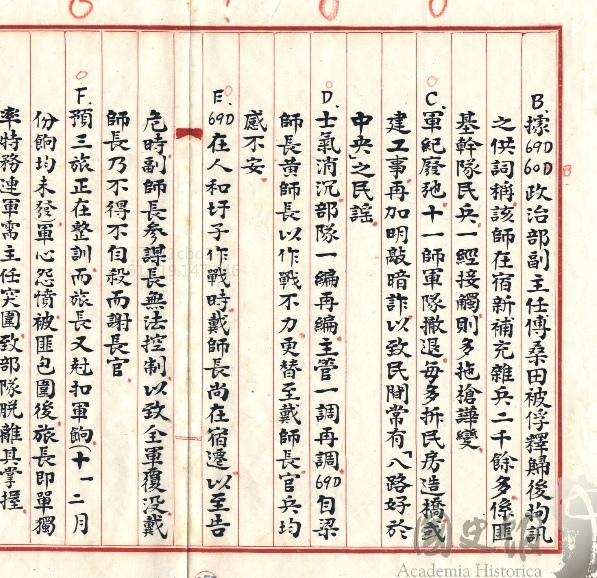 B.據69D60D政治部副主任傅桑田被俘釋歸後拘訊
之供詞稱該師在宿新補充雜兵二千餘多係匪
基幹隊民兵一經接觸則多拖槍譁變
C.軍紀廢弛十一師軍隊撤退每多拆民房造橋或
建工事再加明敲暗詐以致民間常有「八路好於
中央」之民謠
D.士氣消沉部隊一編再編主管一調再調69D自梁
師長黃師長以作戰不力更替至戴師長官兵均
感不安
E.69D在人和圩子作戰時戴師長尚在宿遷以至告
危時副師長參謀長無法控制以致全軍覆没戴
師長乃不得不自殺而謝長官
F.預三旅正在整訓而旅長又尅扣軍餉(十一二月
份餉均未發)軍心怨憤被匪包圍後旅長即單獨
率特務連軍需主任突圍致部隊脱離其掌握
B
國史館
Academia Historica